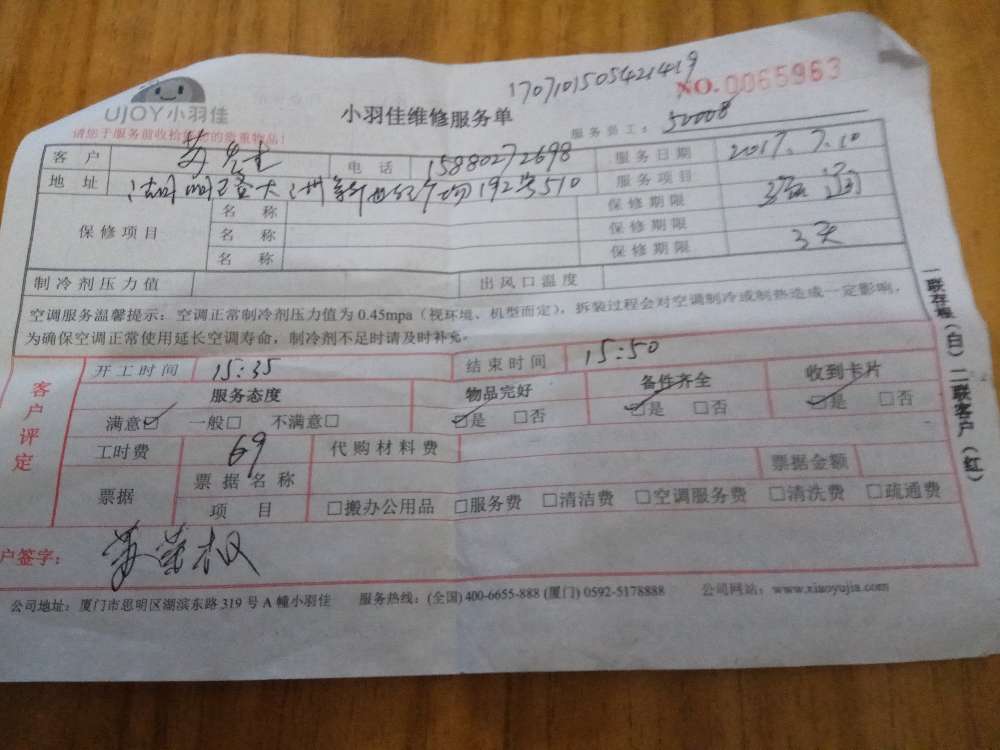 1707101505421419
UJOY小羽佳 小羽佳维修服务单 NO.0065963
请您于服务前收拾好您的贵重物品! 服务员工: 50008
客户 苏先生 电话 15880272698 服务日期 2017.7.10
地址 湖明 大洲新世纪广场192号510 服务项目 疏通
保修项目 名称 保修期限 3天
名称 保修期限
名称 保修期限
制冷剂压力值 出风口温度
空调服务温馨提示：空调正常制冷剂压力值为0.45mpa（视环境、机型而定），拆装过程会对空调制冷或制热造成一定影响，
为确保空调正常使用延长空调寿命，制冷剂不足时请及时补充。
客户评定
开工时间 15:35 结束时间 15:50
服务态度 物品完好 备件齐全 收到卡片
满意☑ 一般□ 不满意□ ☑是 □否 ☑是 □否 ☑是 □否
工时费 69 代购材料费
票据 票据名称 票据金额
项目 □搬办公用品 □服务费 □清洁费 □空调服务费 □清洗费 □疏通费
户签字：
公司地址：厦门市思明区湖滨东路319号A幢小羽佳 服务热线：(全国) 400-6655-888 (厦门) 0592-5178888 公司网站：www.xiaoyujia.com
一联存根（白）二联客户（红）